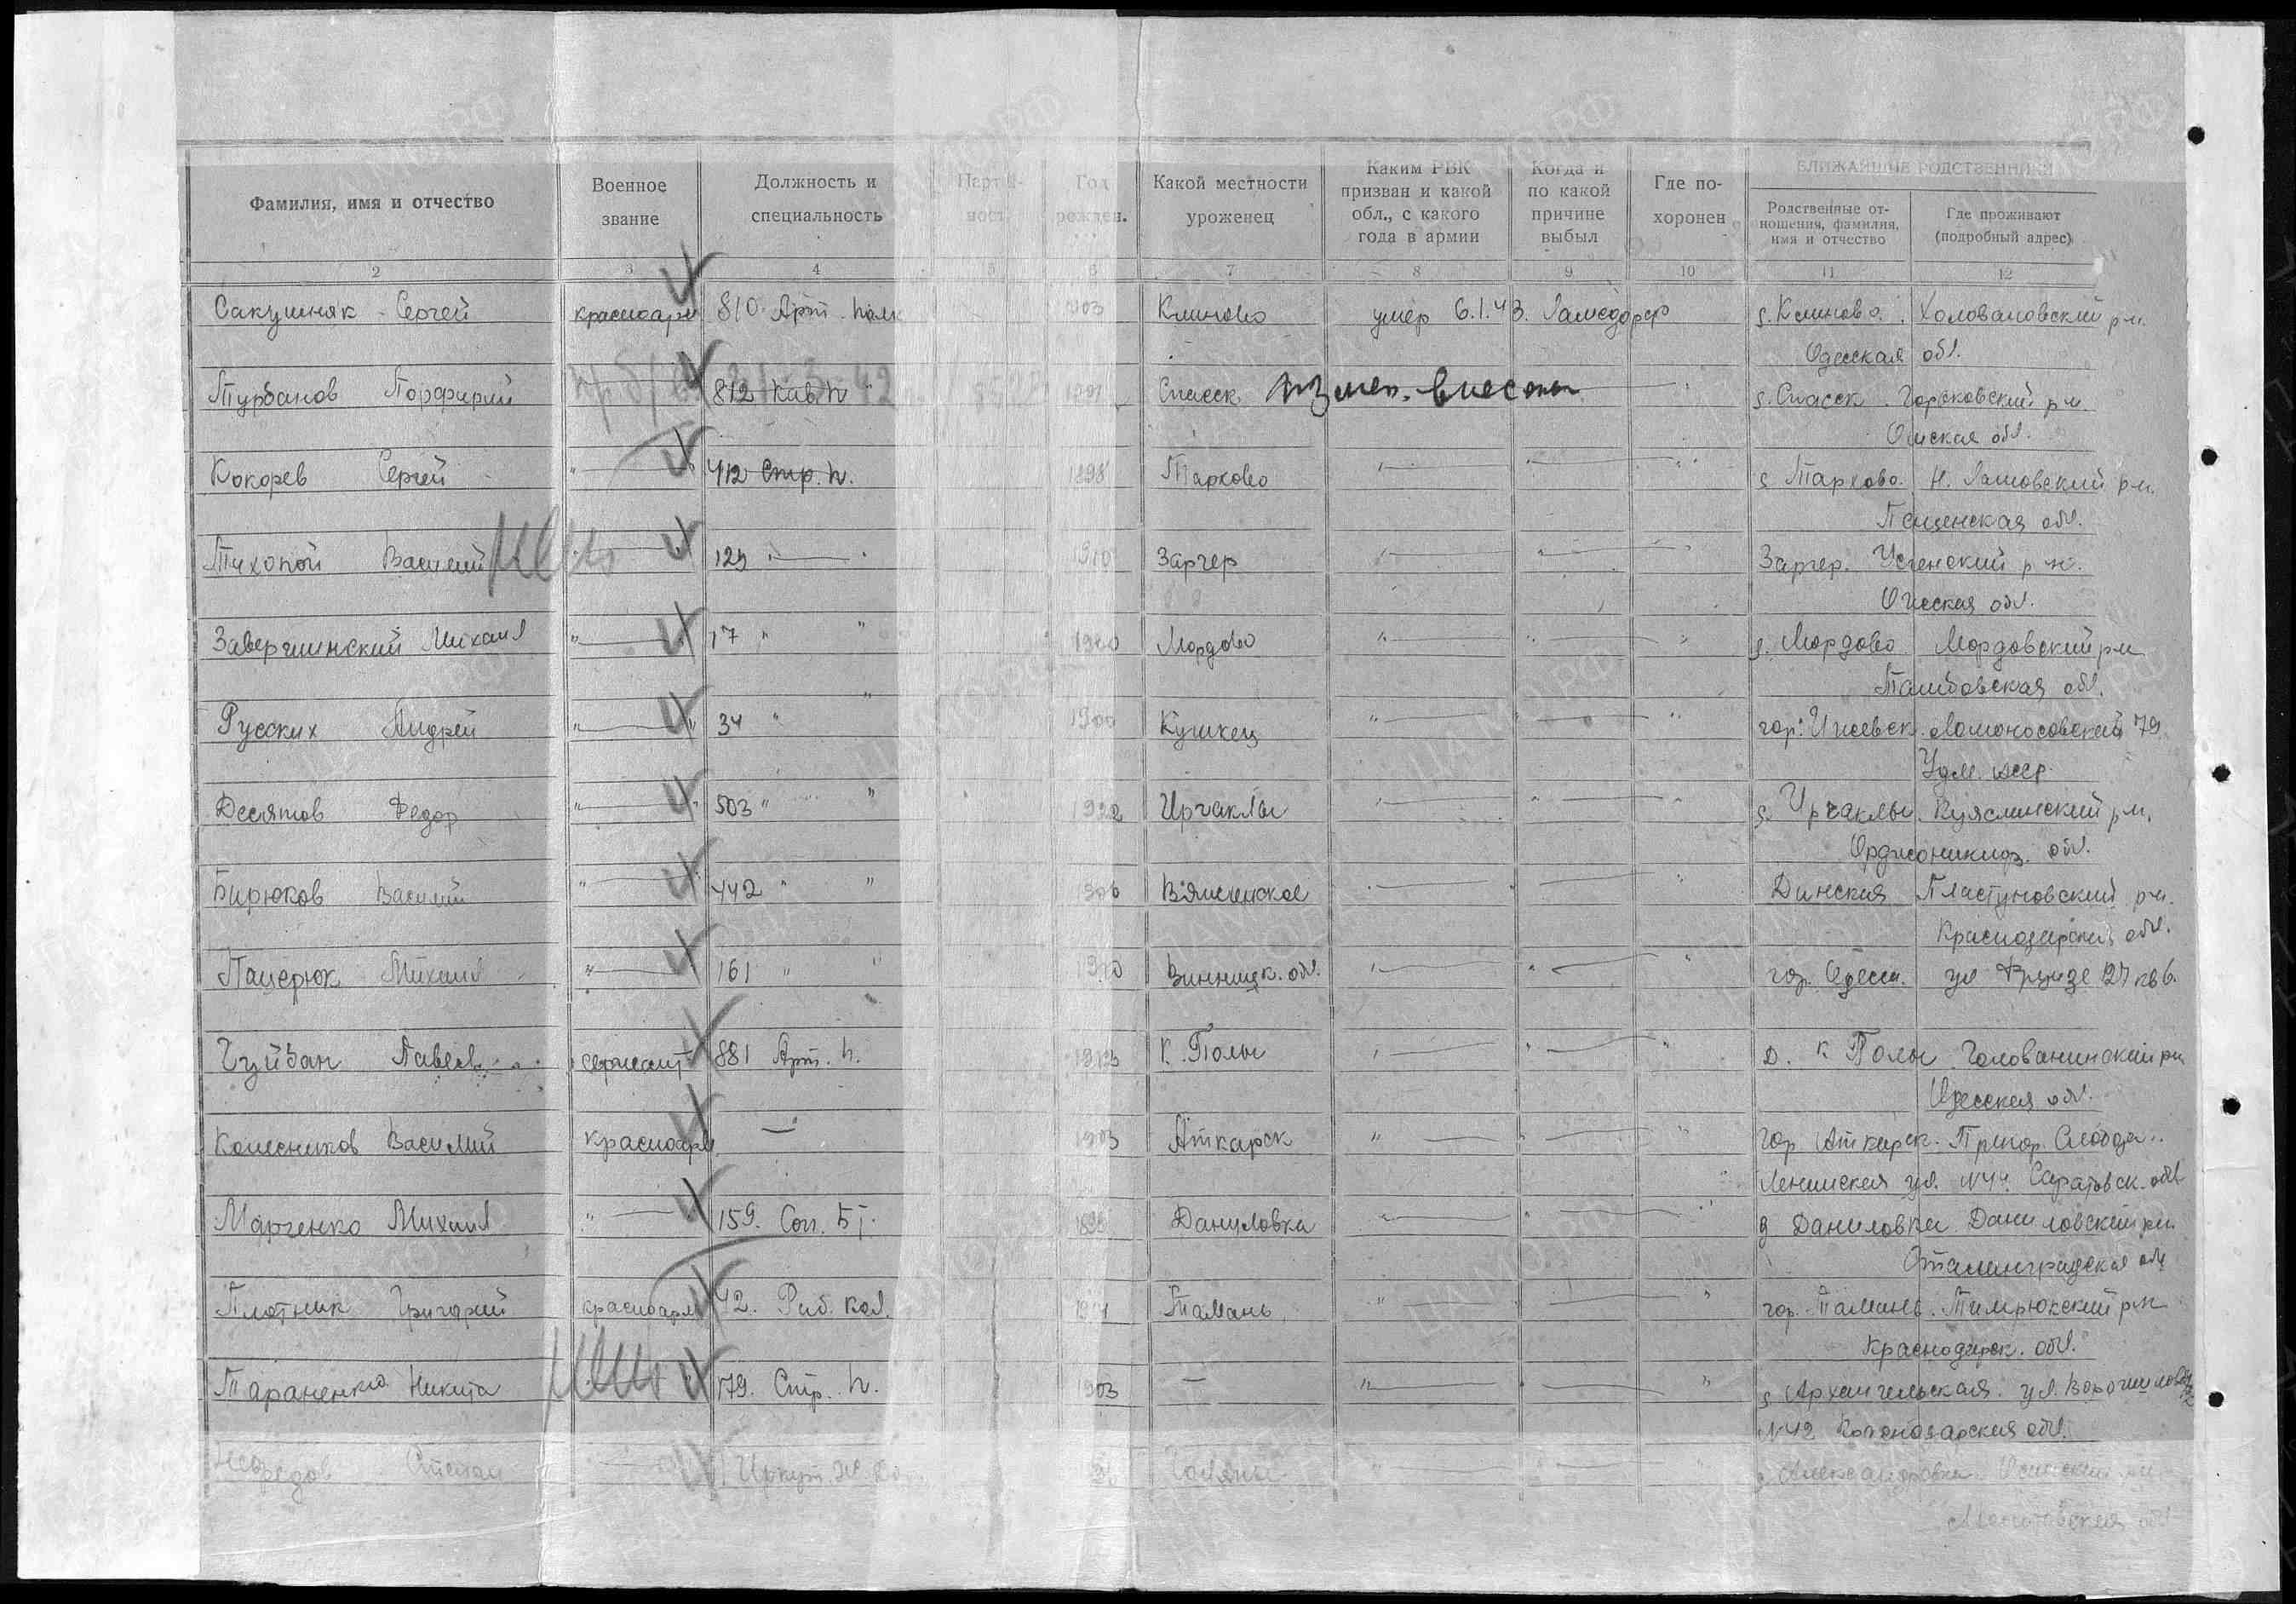 БЛИЖАЙШИЕ РОДСТВЕННИКИ
Фамилия, имя и отчество
Военное звание
Должность и специальность
Партийность
Год рожден.
Какой местности уроженец
Каким РВК призван и какой обл., с какого года в армии
Когда и по какой причине выбыл
Где похоронен
Родственные отношения, фамилия, имя и отчество
Где проживают (подробный адрес)
2 3 4 5 6 7 8 9 10 11 12
Сакушняк Сергей красноарм 810 Арт. полк 1903 Клиново умер 6.1.43. с. Клиново. Холовановский р-н.
Одесская обл.
Турбанов Порфирий 812 Кав. п " Спасск измен. внесены с. Спасск Горьковский р-н.
Омская обл.
Кокорев Сергей " 412 Стр. п. 1898 Тарково " " " с Тархово. Н. Ломовский р-н.
Пензенская обл.
Тихопой Василий 129 " " 1910 Заргер " " Заргер. р-н.
обл.
Завершинский Михаил " 17 " " 1900 Мордово " " " с. Мордово Мордовский р-н
Тамбовская обл.
Русских Андрей " 34 " " 1900 " " " гор. Ижевск. Ломоносовская 79
Удм. АССР.
Десятов Федор " 503 " " 1922 Иргаклы " " " с. Иргаклы р-н.
Орджоникидз. обл.
Бирюков Василий " 442 " " 1906 Динская Пластуновский р-н.
Краснодарская обл.
Пацерюк Михаил " 161 " " 1910 Винницк. обл. " " " гор. Одесса. ул Фрунзе 127 кв 6.
Чуйбан Павел сержант 881 Арт. п. К. Полы " " Д. К Полы Голованинский р-н
Одесская обл.
Колесников Василий красноарм — " 1903 Аткарск " " " гор Аткарск. Пригор. Слобода.
Ленинская ул. N44. Саратовск. обл
Марченко Михаил " 159. Сап. Бт. Даниловка " " " д Даниловка Даниловский р-н
Сталинградская обл
Плотник Григорий красноарм 42. Раб. Кол. Тамань. " " " гор. Тамань. Тимрюкский р-н
Краснодарск. обл.
Тараненко Никита " 179. Стр. п. 1903 — " " " с Архангельская. ул. Ворошилова
N42 Краснодарская обл.
Степан Иркут. " " " с. Александровка. р-н
обл